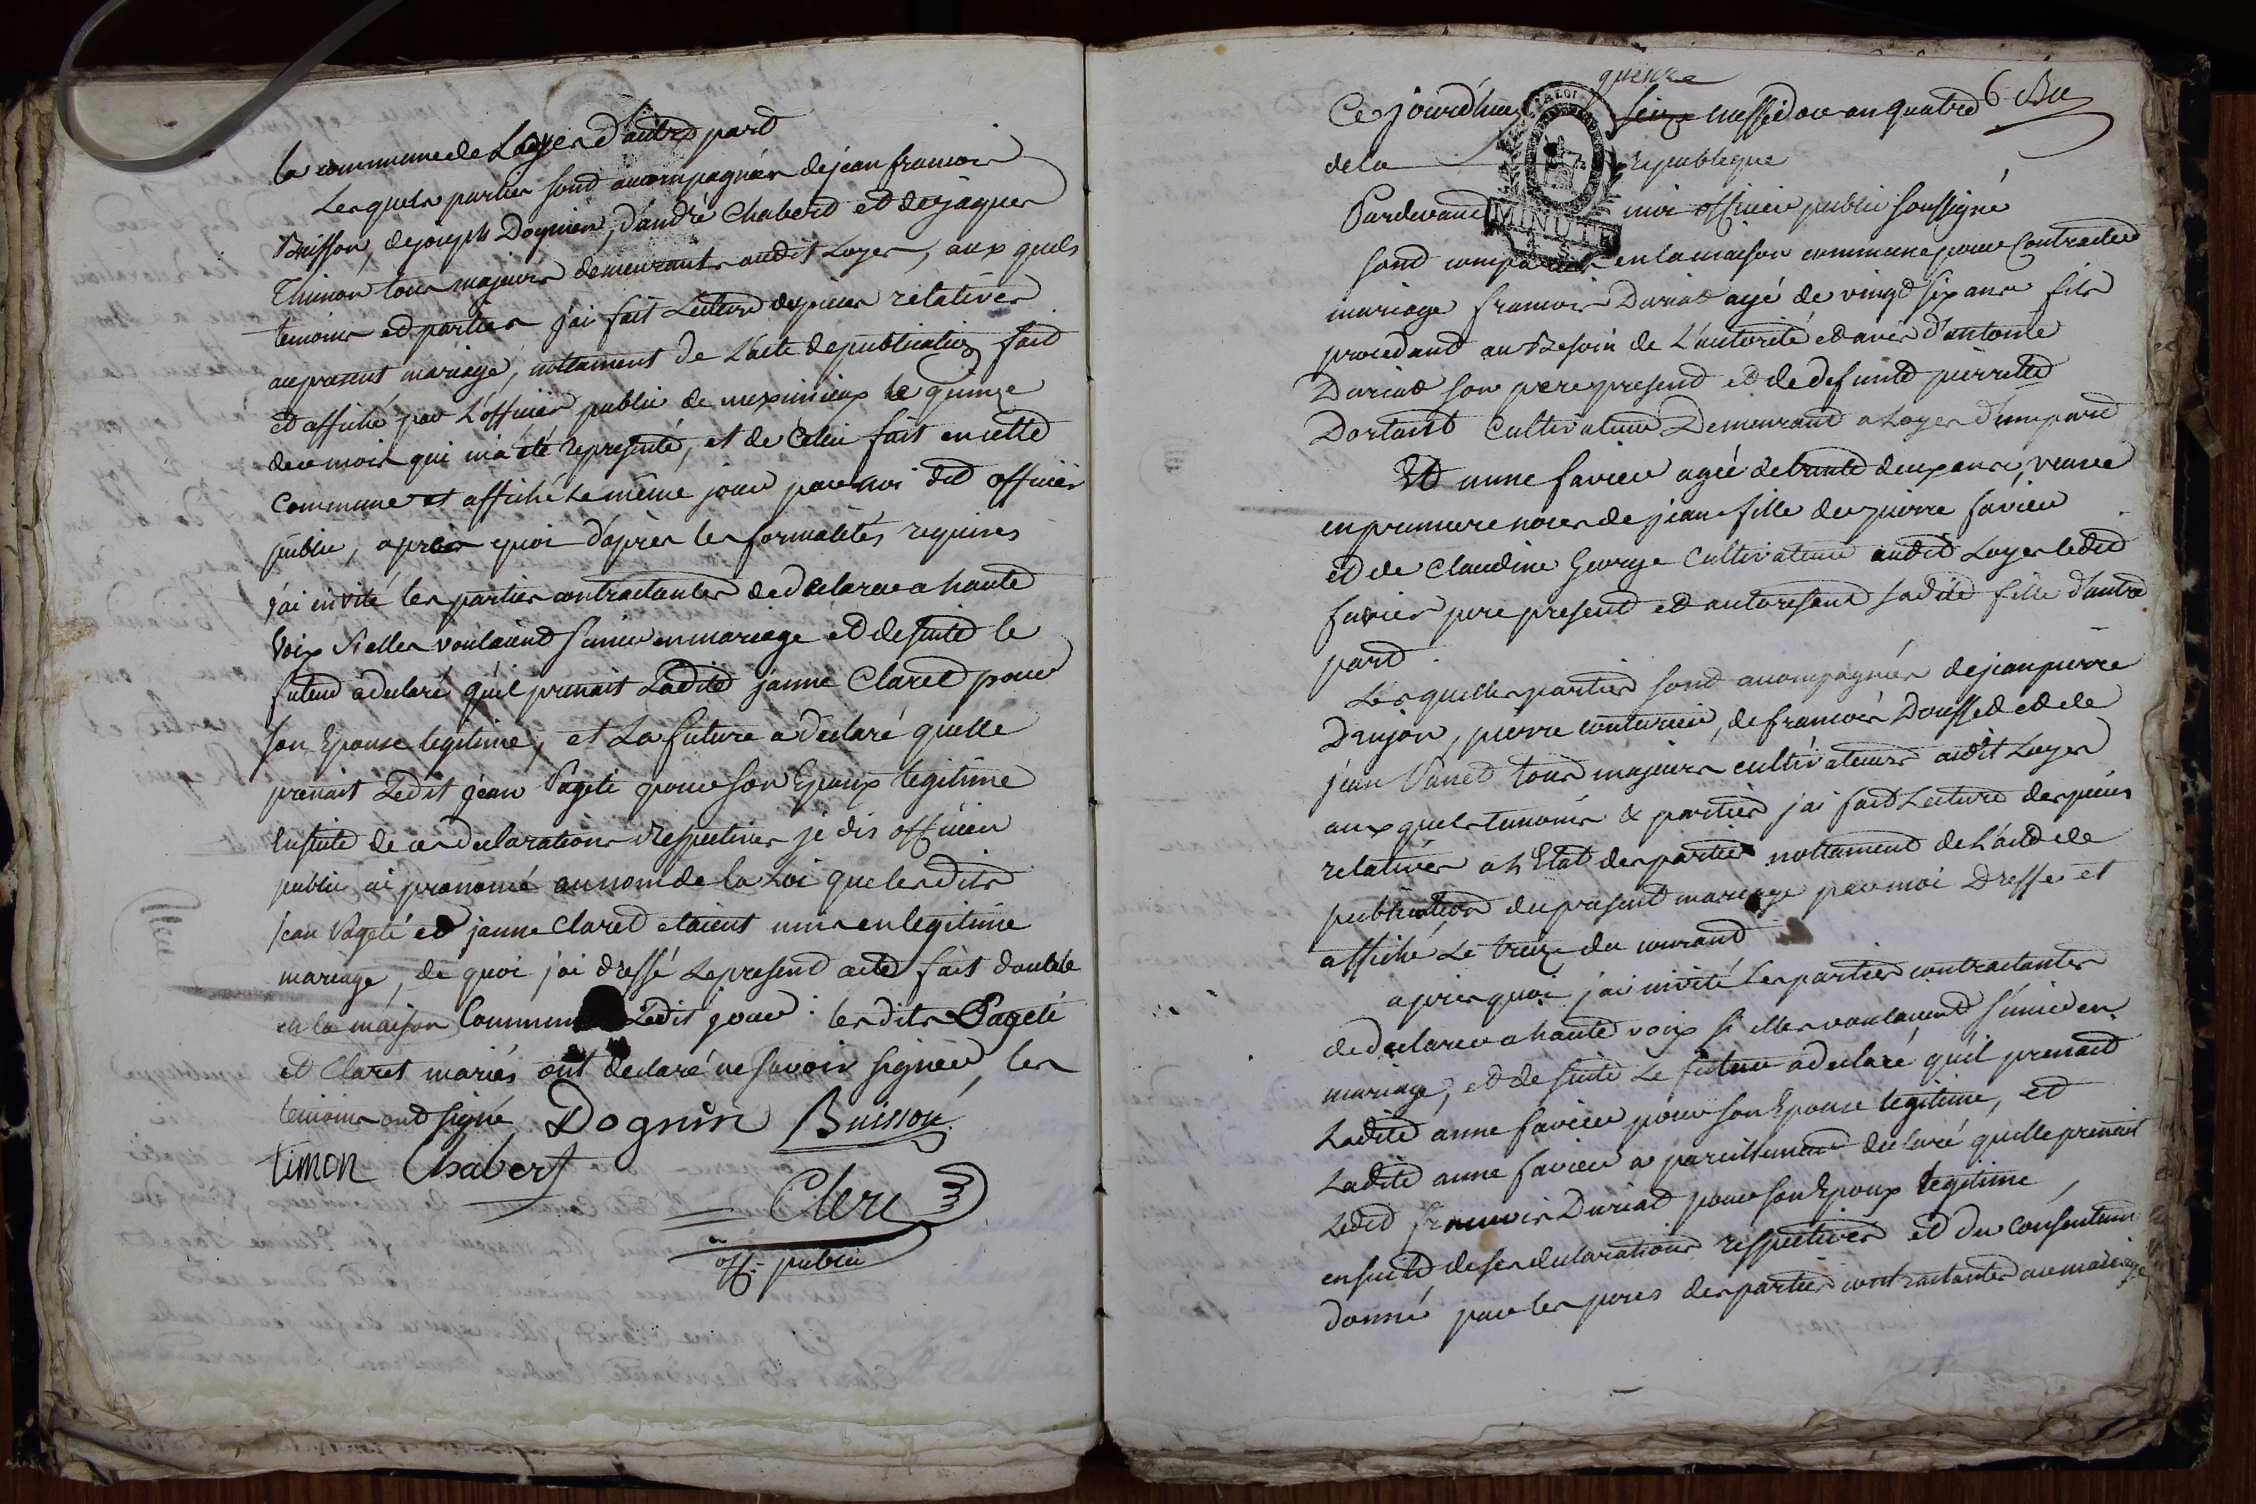 la commune de Loyes d'autre part
Lesquels parties sont accompagnées de jean francois
Buisson, de joseph Dognin, d'andré Chabert et de jaques
Thimon tous majeurs demeurants audit Loyes, aux quels
temoins et parties j'ai fait Lecture des pieces relatives
au present mariage, nottament de L'acte de publication fait
et affiché par L'officier public de meximieux le quinze
de ce mois qui m'a été representé, et de Celui fait en cette
Commune et affiché Le même jour par moi dit officier
public, apres quoi d'après les formalités requises
j'ai invité les parties contractantes de declarer a haute
Voix si elles voulaient s'unir en mariage et de suite le
futur a declaré qu'il prenait Ladite janne Claret pour
son Epouse legitime, et La future a declaré qu'elle
prenait Ledit jean Pageté pour son Epoux legitime
Ensuite de ces declarations respectives je dis officier
public ai prononcé au nom de la Loi que lesdits
jean Pageté et janne Claret etaient unis en legitime
mariage, de quoi j'ai dressé Le present acte fait double
en la maison Commune Ledit jour : lesdits Pageté
et Claret mariés ont declaré ne savoir signer, les
temoins ont signé Dognin Buisson
timon Chabert
Clerc
off. public
quinze
Ce jourd'hui seize messidor an quatre 6
de la republique
MINUTE
Pardevant moi officier public soussigné
sont comparus en la maison commune pour Contracter
mariage francois Duriat agé de vingt six ans fils
procedant au Besoin de L'autorité et avis d'antoine
Duriat son pere present et de defunte pierrette
Dortant Cultivateur Demeurant a Loyes d'une part
Et anne favier agée de trente deux ans, veuve
en premiere noces de jean fille de pierre favier
et de Claudine George Cultivateur audit Loyes ledit
favier pere present et autorisant sadite fille d'autre
part
Lesquelles parties sont accompagnées de jean pierre
Drujon, pierre couturier, de francois Dousset et de
jean Vanet tous majeurs cultivateurs audit Loyes
aux quels temoins & parties j'ai fait Lecture des pieces
relatives a L'Etat des parties nottament de L'acte de
publication du present mariage par moi Dressé et
affiché Le treize du courant
apres quoi j'ai invité Les parties contractantes
de declarer a haute voix si elles voulaient s'unir en
mariage, et de suite Le futur a declaré qu'il prenait
Ladite anne favier pour son Epouse legitime, et
Ladite anne favier a pareillement declaré qu'elle prenait
Ledit francois Duriat pour son Epoux legitime
ensuite de ses declarations respectives et du consentem
donné par les peres des parties contractantes au mariage